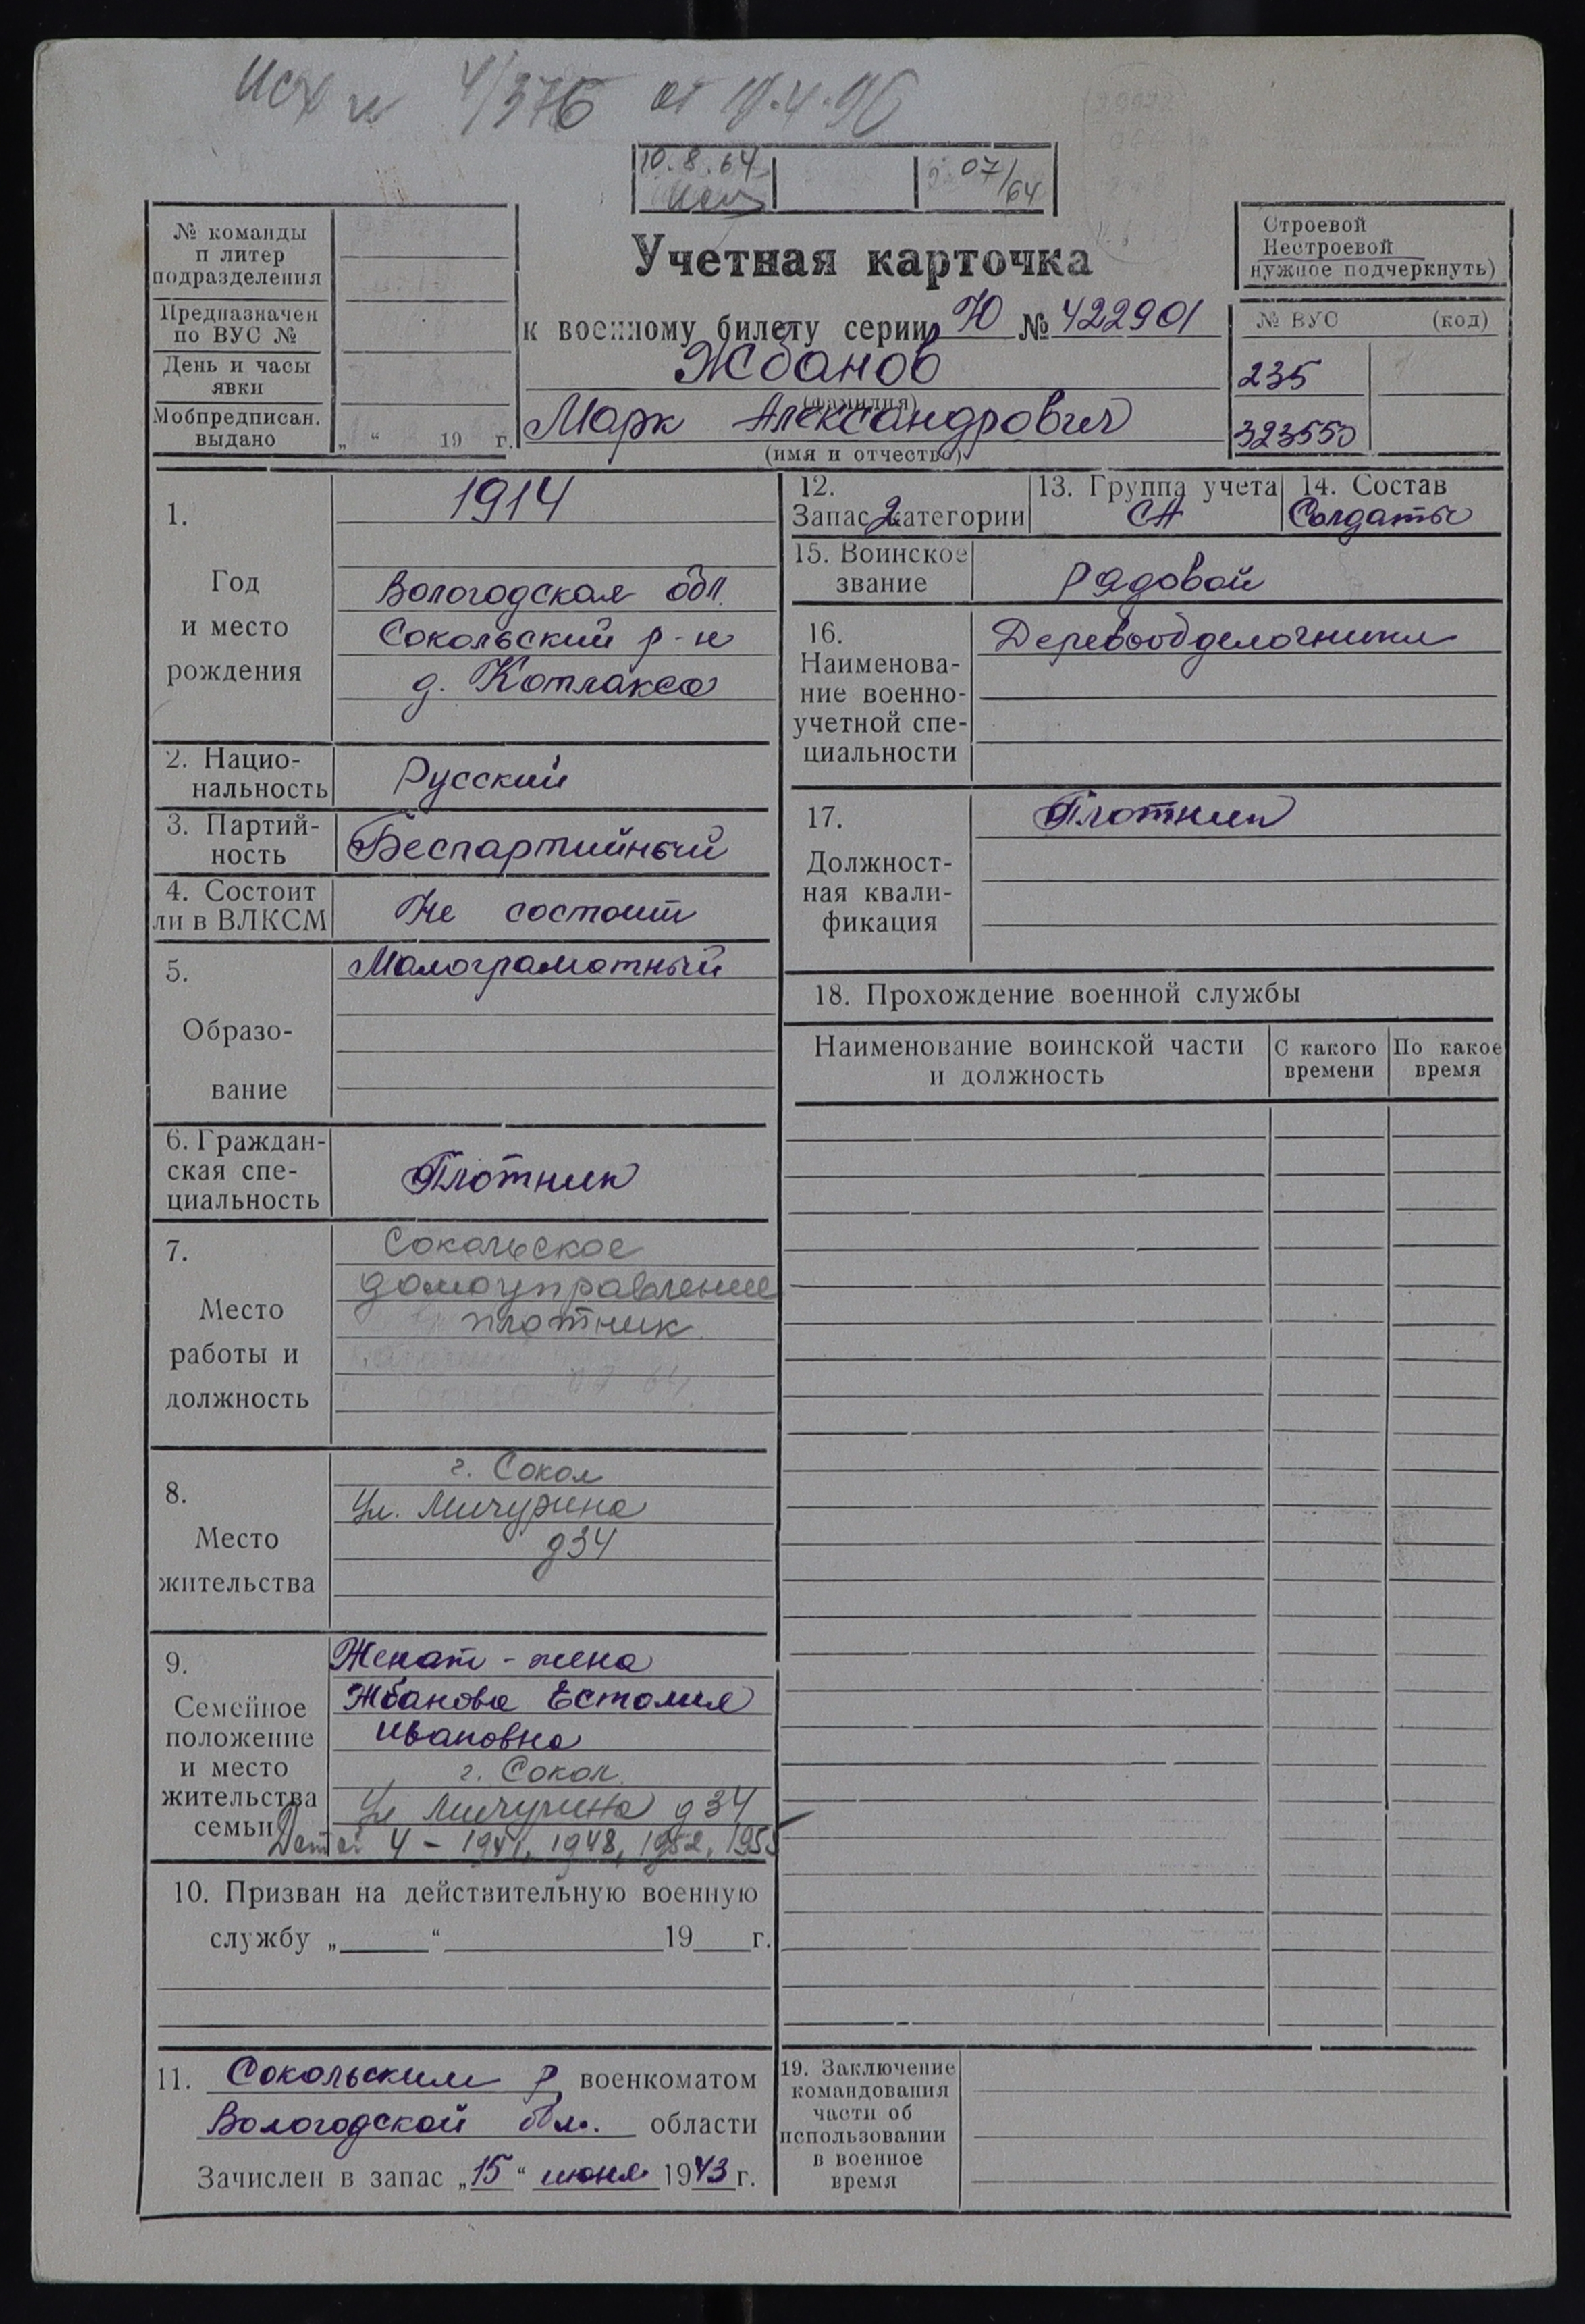 Исх № 4/376 от 19.4.96
10.8.64
07/64
№ команды
и литер
подразделения
Предназначен
по ВУС №
День и часы
явки
Мобпредписан.
выдано
„ “ 19 г.
Учетная карточка
к военному билету серии Ю № 422901
Жбанов
(фамилия)
Марк Александрович
(имя и отчество)
Строевой
Нестроевой
нужное подчеркнуть)
№ ВУС (код)
235
323550
1.
Год
и место
рождения
1914
Вологодская обл.
Сокольский р-н
д. Котлакса
2. Нацио-
нальность
Русский
3. Партий-
ность
Беспартийный
4. Состоит
ли в ВЛКСМ
Не состоит
5.
Образо-
вание
Малограмотный
6. Граждан-
ская спе-
циальность
Плотник
7.
Место
работы и
должность
Сокольское
домоуправление
плотник
8.
Место
жительства
г. Сокол
Ул. Мичурина
д34
9.
Семейное
положение
и место
жительства
семьи
Женат - жена
Жбанова Естолия
Ивановна
г. Сокол
Ул Мичурина д 34
Детей 4 - 1941, 1948, 1952, 1955
10. Призван на действительную военную
службу „ “ 19 г.
11. Сокольским р военкоматом
Вологодской обл. области
Зачислен в запас „15“ июня 1943 г.
12.
Запас 2 категории
13. Группа учета
СА
14. Состав
Солдаты
15. Воинское
звание
Рядовой
16.
Наименова-
ние военно-
учетной спе-
циальности
Деревообделочники
17.
Должност-
ная квали-
фикация
Плотник
18. Прохождение военной службы
Наименование воинской части
и должность
С какого
времени
По какое
время
19. Заключение
командования
части об
использовании
в военное
время